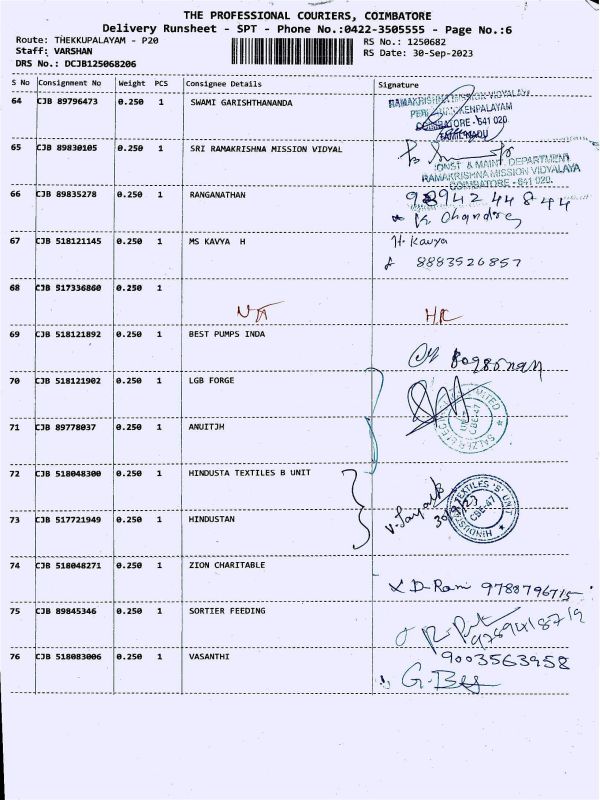 THE PROFESSIONAL COURIERS, COIMBATORE
Delivery Runsheet - SPT - Phone No.:0422-3505555 - Page No.:6
Route: THEKKUPALAYAM - P20 RS No.: 1250682
Staff: VARSHAN RS Date: 30-Sep-2023
DRS No.: DCJB125068206
S No Consignment No Weight PCS Consignee Details Signature
64 CJB 89796473 0.250 1 SWAMI GARISHTHANANDA
RAMAKRISHNA MISSION VIDYALAYA
COIMBATORE - 641 020
TAMILNADU
65 CJB 89830105 0.250 1 SRI RAMAKRISHNA MISSION VIDYAL
CONST & MAINT. DEPARTMENT
RAMAKRISHNA MISSION VIDYALAYA
COIMBATORE - 641 020.
66 CJB 89835278 0.250 1 RANGANATHAN 98942 44844
67 CJB 518121145 0.250 1 MS KAVYA H H. Kavya
8883526857
68 CJB 517336860 0.250 1
69 CJB 518121892 0.250 1 BEST PUMPS INDA
70 CJB 518121902 0.250 1 LGB FORGE
71 CJB 89778037 0.250 1 ANUITJH
72 CJB 518048300 0.250 1 HINDUSTA TEXTILES B UNIT
HINDUSTAN TEXTILES 'B' UNIT
CBE-47
73 CJB 517721949 0.250 1 HINDUSTAN
74 CJB 518048271 0.250 1 ZION CHARITABLE
D. Rani 9788796715
75 CJB 89845346 0.250 1 SORTIER FEEDING
76 CJB 518083006 0.250 1 VASANTHI 9003563958